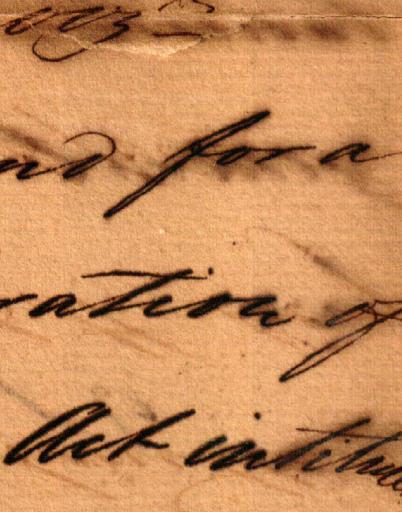 nd for a
ration of
Act intitule